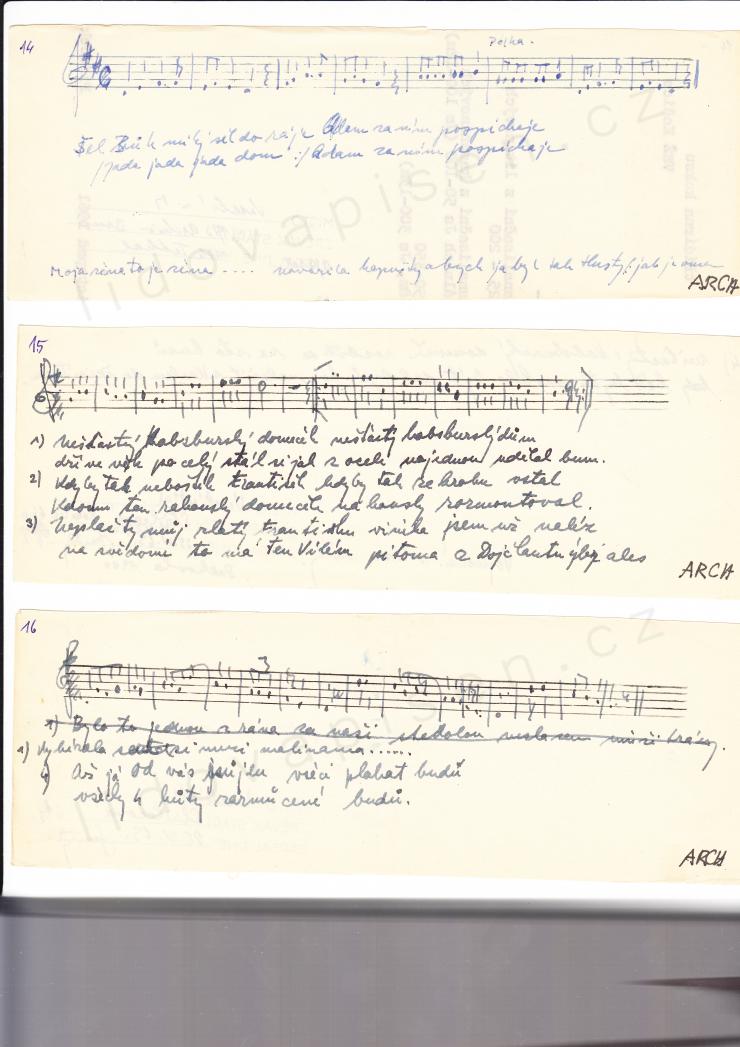 14
Polka.
Šel Bůh milý šil do ráje Adam za ním pospíchaje
/:jada jada jada dom :/ Adam za ním pospíchaje
Moja žena to je žena .... navařila kapusty abych ja byl tak tlustý jak je ona
ARCH
15
1) Nešťastný habsburský domeček nešťastný habsburský dům
dříve věk po celý stál si jak z oceli najednou udělal bum.
2) Kdyby tak nebožtík František kdyby tak ze hrobu vstal
Kdo mu ten rakouský domeček na kousky rozmontoval.
3) Neplač ty můj zlatý Františku viníka jsem už nalez
na svědomí to má ten Vilém pitoma z Dojčlantu
ARCH
16
1) Bylo to jednou z rána za naší stodolou
1) Vybírala sobě si mezi malinama.....
2) Až já od vás půjdu všeci plakat budú
všecky kúty zarmúcené budú.
ARCH
lidovapisen.cz
lidovapisen.cz